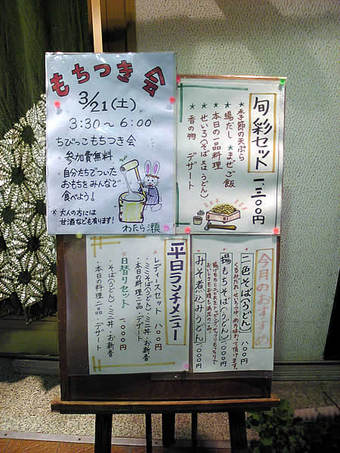 もちつき会
3/21(土)
3:30〜6:00
ちびっこもちつき会
参加費無料
・自分たちでついた
おもちをみんなで
食べよう！
＊大人の方には
甘酒なども有ります！
わたら瀬
旬彩セット 一,三〇〇円
★季節の天ぷら
★揚だし ★まぜご飯
★本日の一品料理
★せいろ(そば又はうどん)
★香の物 デザート
平日ランチメニュー
・レディースセット
・ミニそば(うどん)・ミニ丼・お新香
・本日の料理二品・デザート
・日替りセット
・そば(うどん)・ミニ丼・お新香
・本日の料理一品・デザート
今月のおすすめ
二色そば(うどん)
みそ煮込みうどん